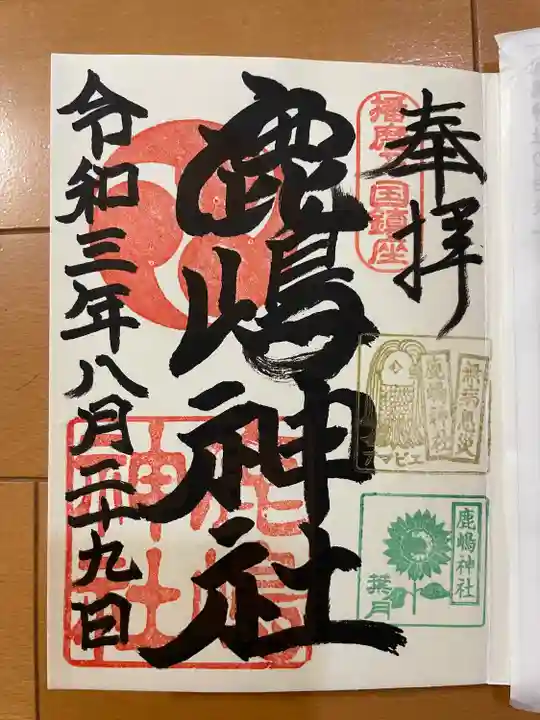 奉拝
播磨之国鎮座
鹿嶋神社
鹿嶋神社
令和三年八月二十九日
無病息災
鹿嶋神社
アマビエ
鹿嶋神社
葉月